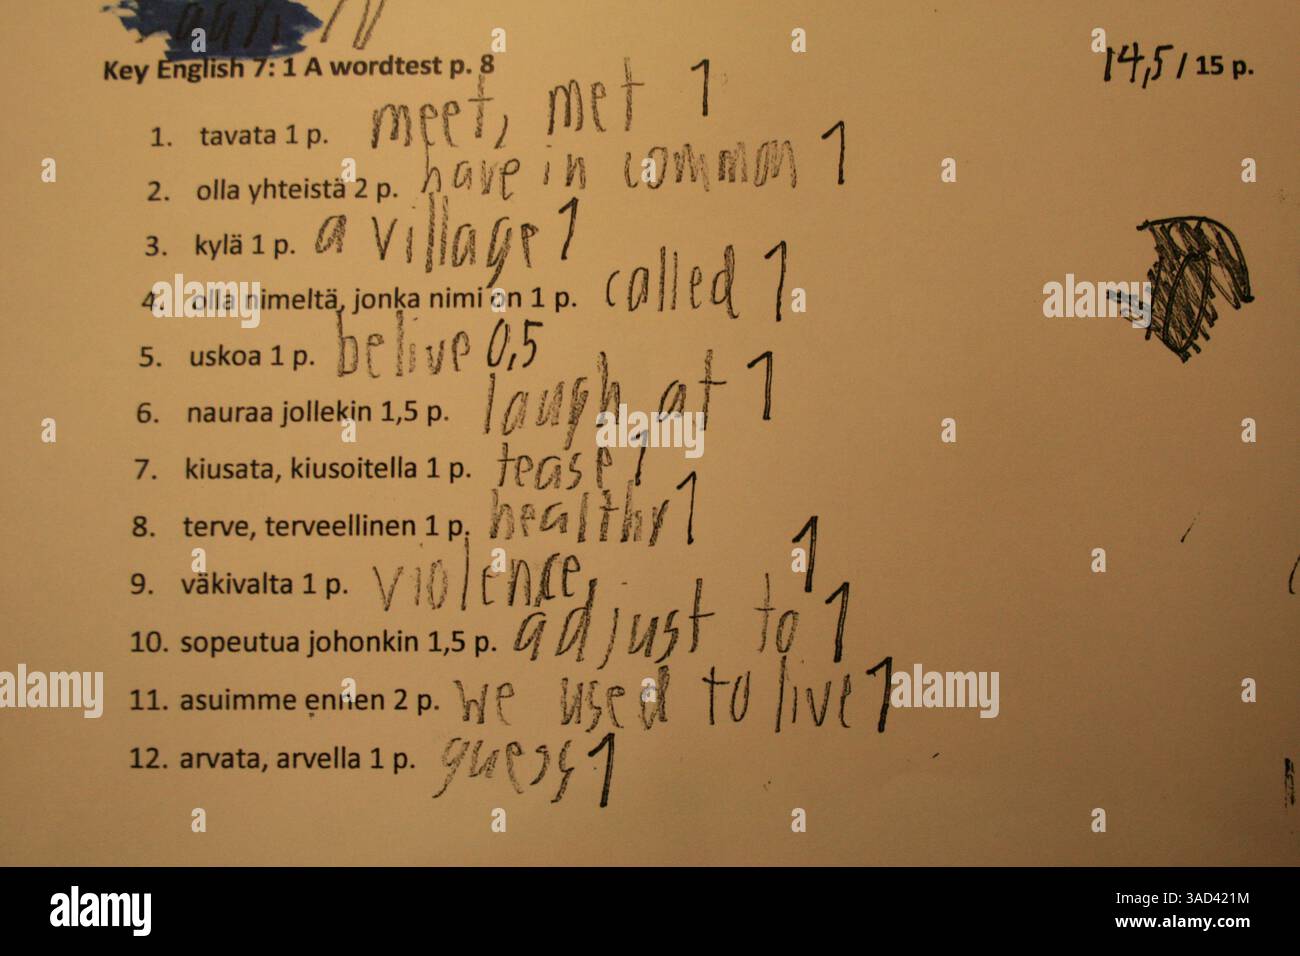 Key English 7: 1 A wordtest p. 8 14,5 / 15 p.
1. tavata 1 p. meet, met 1
2. olla yhteistä 2 p. have in common 1
3. kylä 1 p. a village 1
4. olla nimeltä, jonka nimi on 1 p. called 1
5. uskoa 1 p. belive 0,5
6. nauraa jollekin 1,5 p. laugh at 1
7. kiusata, kiusoitella 1 p. tease 1
8. terve, terveellinen 1 p. healthy 1
9. väkivalta 1 p. violence, 1
10. sopeutua johonkin 1,5 p. adjust to 1
11. asuimme ennen 2 p. we used to live 1
12. arvata, arvella 1 p. guess 1
alamy
alamy
alamy
alamy
Image ID: 3AD421M
www.alamy.com